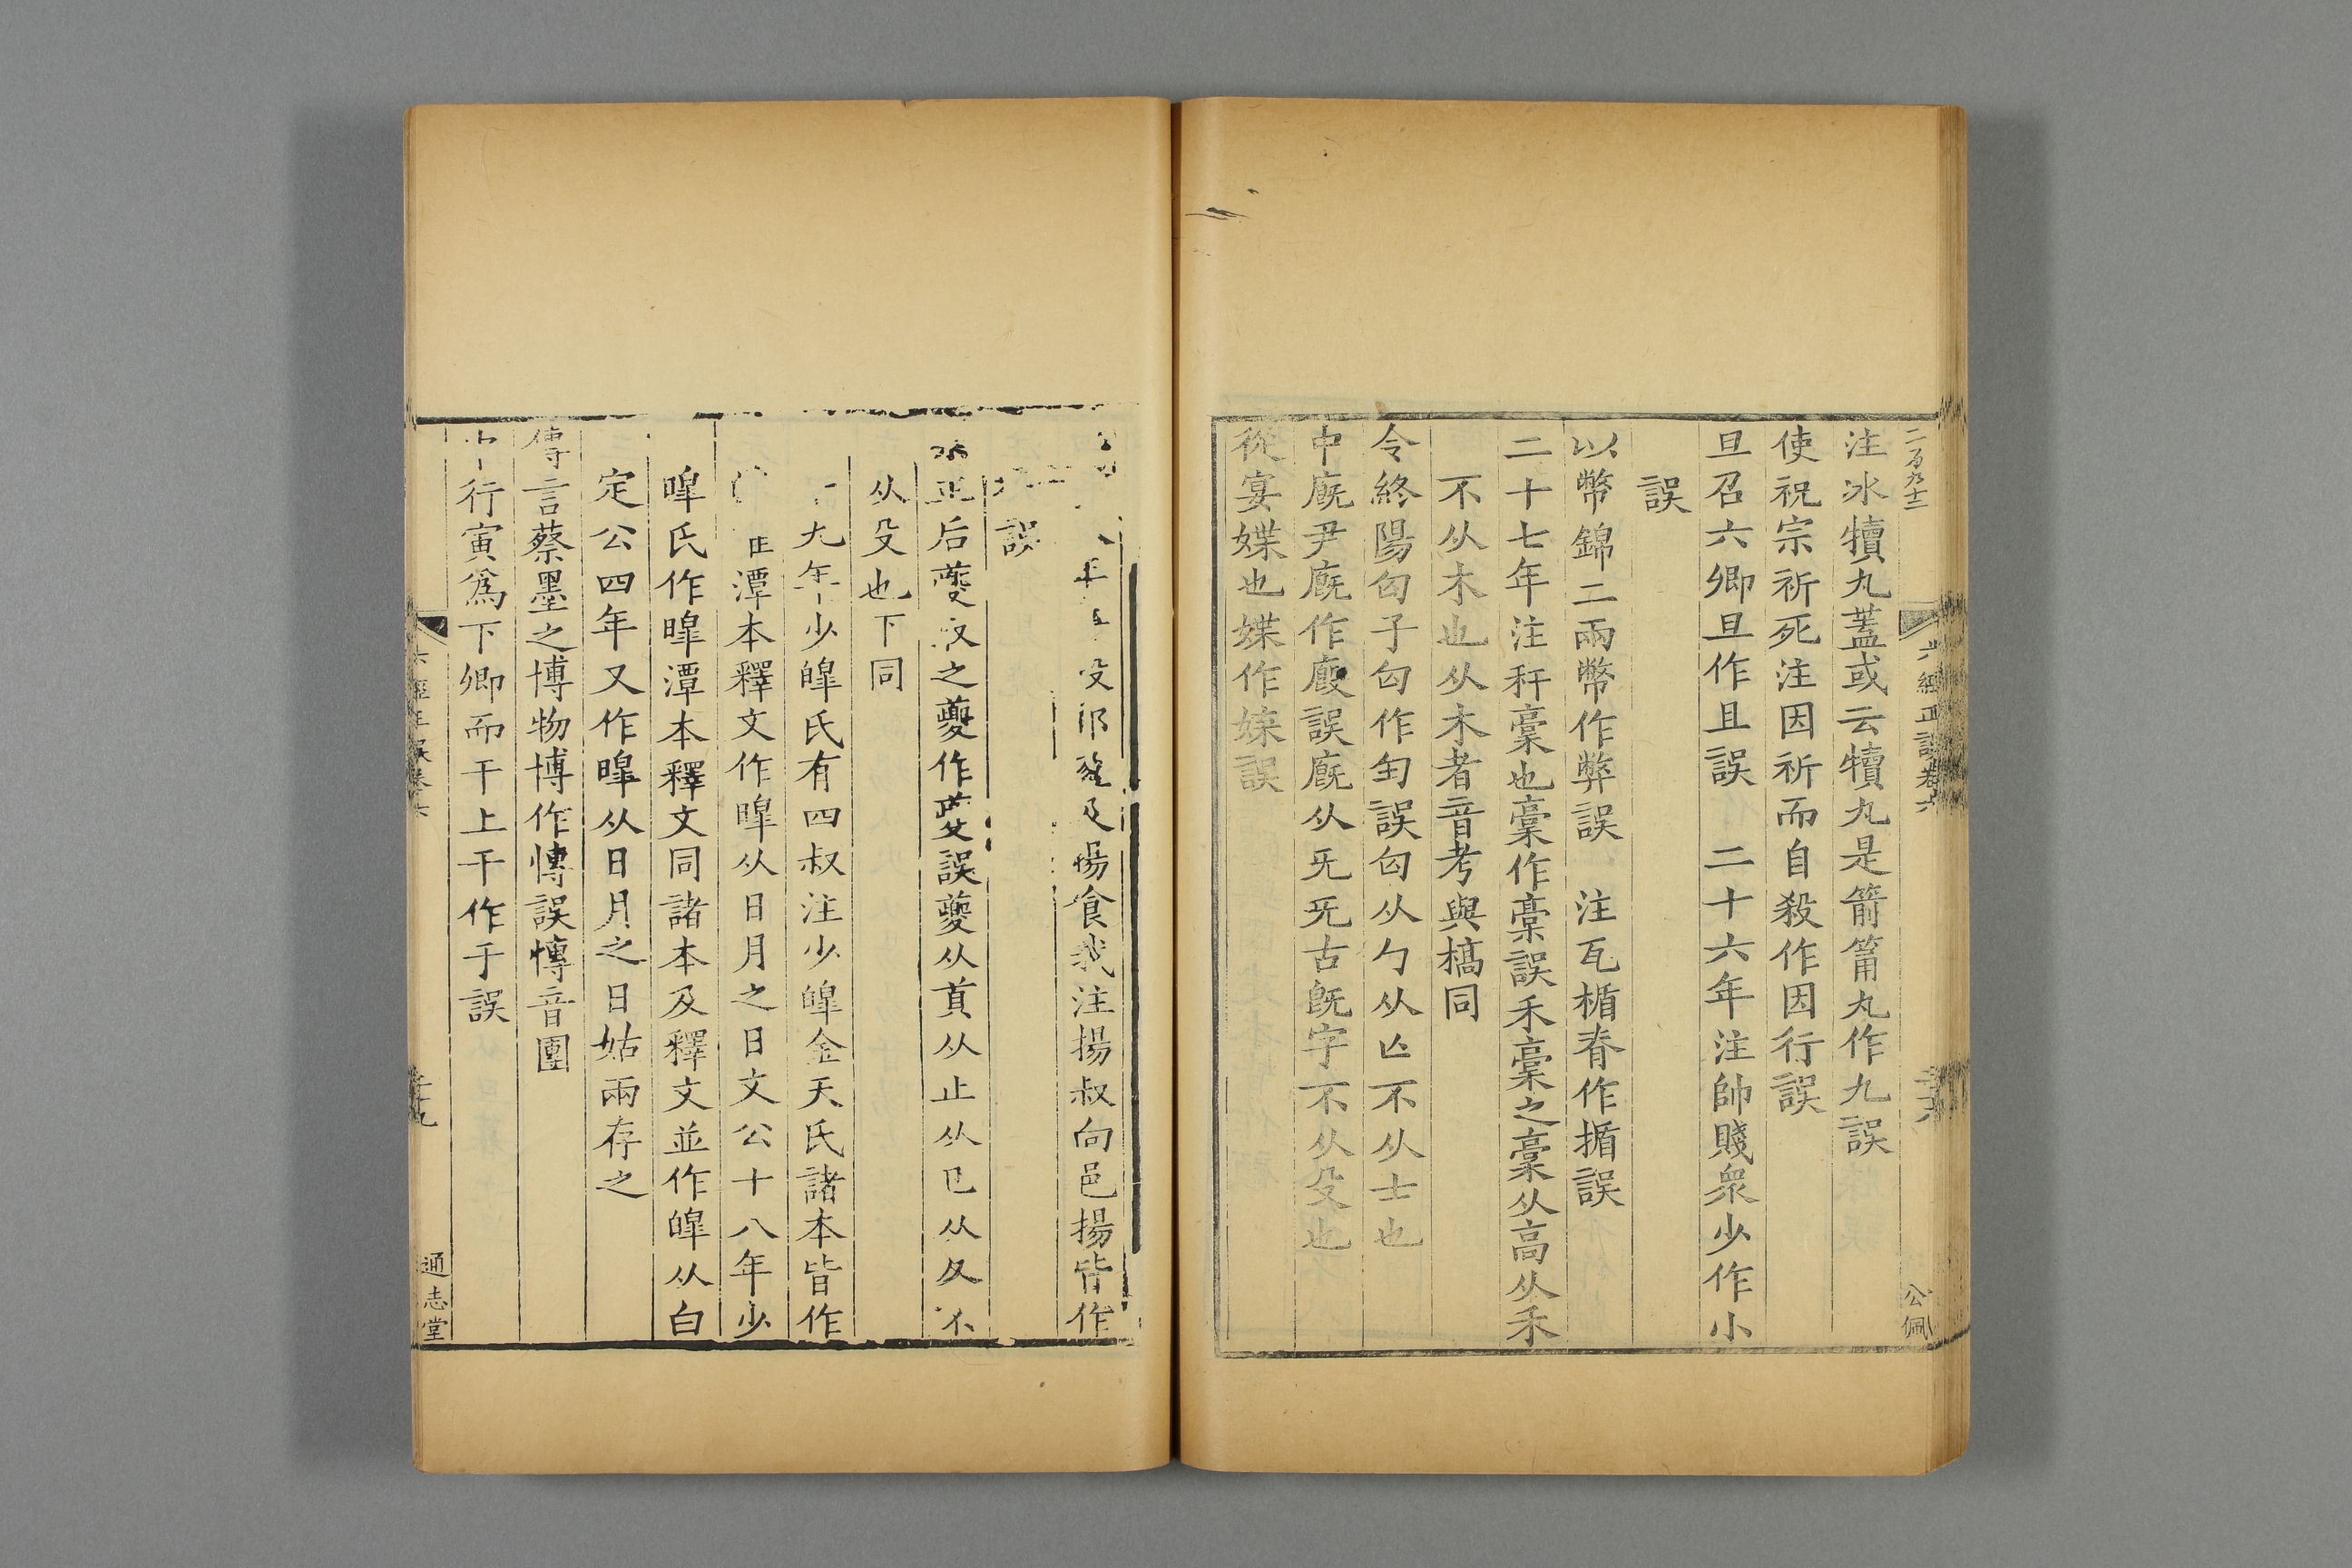 二百九十二
六經正誤卷六
公佩
注冰犢丸蓋或云犢丸是箭筩丸作九誤
使祝宗祈死注因祈而自殺作因行誤
旦召六卿旦作且誤　二十六年注帥賤衆少作小
誤
以幣錦二兩幣作弊誤　注瓦楯脊作揗誤
二十七年注秆稾也稾作槀誤禾稾之稾从高从禾
不从木也从木者音考與槁同
令終陽匄子匄作匃誤匄从勹从亾不从士也
中廐尹廐作廏誤廐从旡旡古旣字不从殳也
從宴媟也媟作媒誤
食我注揚叔向邑揚皆作
誤
正后夔之夔作誤夔从首从止从巳从夊不
从殳也下同
九年少皥氏有四叔注少皥金天氏諸本皆作
潭本釋文作暤从日月之日文公十八年少
暤氏作暤潭本釋文同諸本及釋文並作皥从白
定公四年又作暤从日月之日姑兩存之
傳言蔡墨之博物博作愽誤慱音團
中行寅爲下卿而干上干作于誤
六經正誤卷六
通志堂